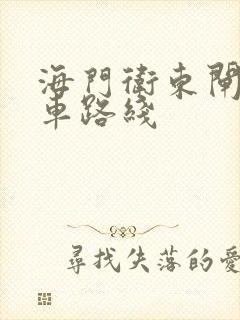 海門衛東閘
車路綫
尋找失落的愛